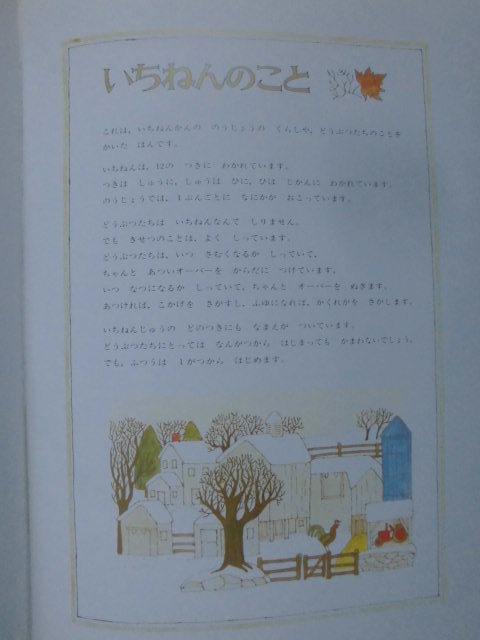 いちねんのこと
これは、いちねんかんの のうじょうの くらしや、どうぶつたちのことを
かいた ほんです。
いちねんは、12の つきに わかれています。
つきは しゅうに、しゅうは ひに、ひは じかんに わかれています。
のうじょうでは、1ぷんごとに なにかが おこっています。
どうぶつたちは いちねんなんて しりません。
でも きせつのことは、よく しっています。
どうぶつたちは、いつ さむくなるか しっていて、
ちゃんと あついオーバーを からだに つけています。
いつ なつになるか しっていて、ちゃんと オーバーを ぬぎます。
あつければ、こかげを さがすし、ふゆになれば、かくれがを さがします。
いちねんじゅうの どのつきにも なまえが ついています。
どうぶつたちにとっては なんがつから はじまっても かまわないでしょう。
でも、ふつうは 1がつから はじめます。